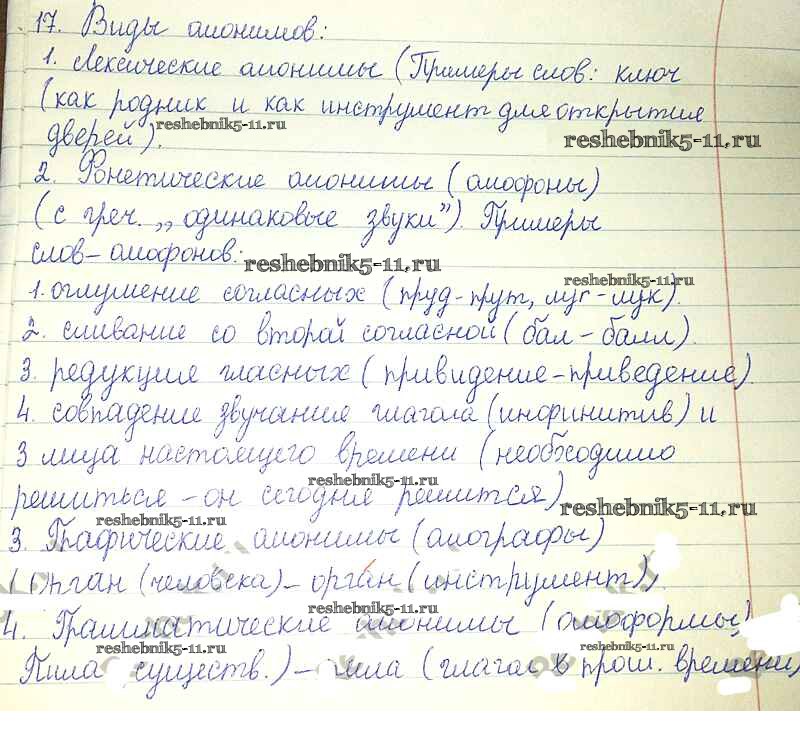 17. Виды омонимов:
1. Лексические омонимы (Примеры слов: ключ
(как родник и как инструмент для открытия
дверей).
reshebnik5-11.ru
reshebnik5-11.ru
2. Фонетические омонимы (омофоны)
(с греч. „одинаковые звуки”). Примеры
слов-омофонов:
reshebnik5-11.ru
reshebnik5-11.ru
1. оглушение согласных (пруд-прут, луг-лук).
2. сливание со второй согласной (бал-балл).
3. редукция гласных (привидение-приведение).
4. совпадение звучания глагола (инфинитив) и
3 лица настоящего времени (необходимо
решиться-он сегодня решится)
reshebnik5-11.ru
reshebnik5-11.ru
reshebnik5-11.ru
3. Графические омонимы (омографы)
(Орган (человека)-орган (инструмент),
reshebnik5-11.ru
4. Грамматические омонимы (омоформы,
reshebnik5-11.ru
reshebnik5-11.ru
Пила существ.)-пила (глагол в прош. времени)